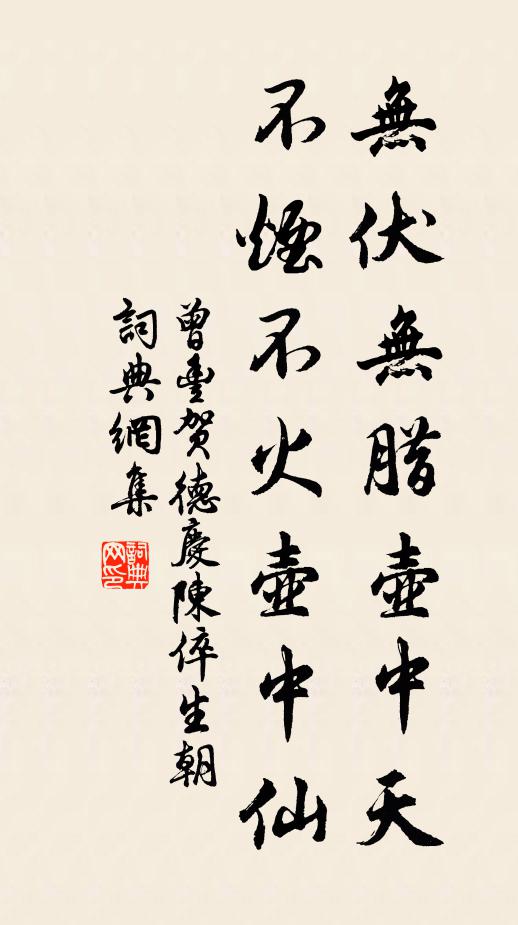 無伏無腊壺中天
不煙不火壺中仙
曾豊賀德慶陳倅生朝
詞典網集
詞典网印